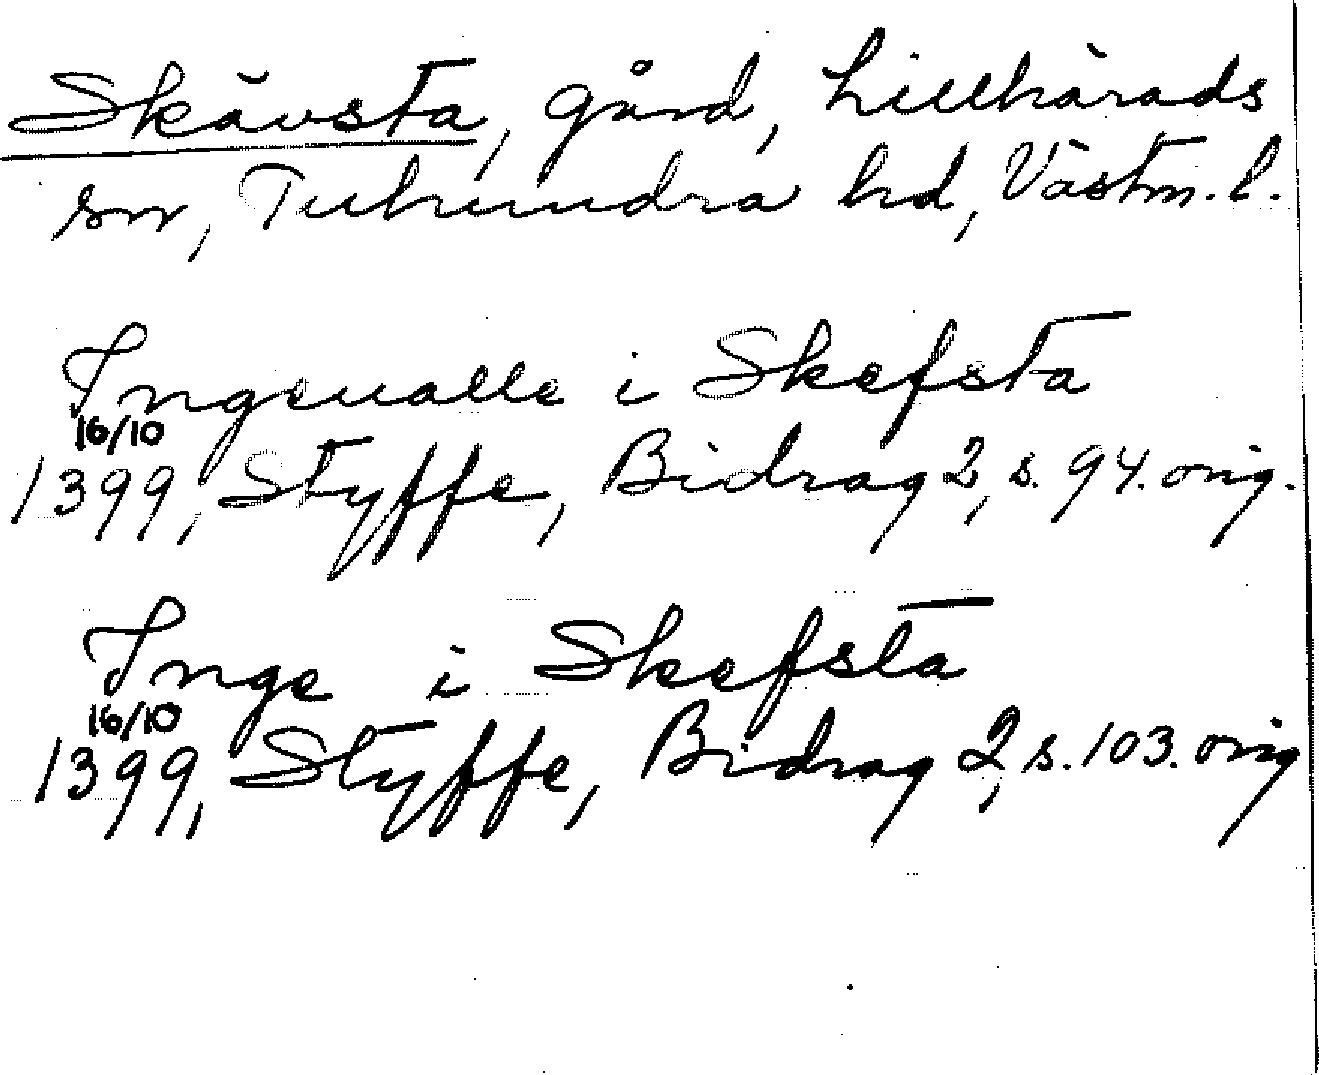 Skävsta, gård, Lillhärads
sn, Tuhundra hd, Västm. l.
Ingeualle i Skefsta
16/10
1399, Styffe, Bidrag 2, s. 94. orig.
Inge i Skefsta
16/10
1399, Styffe, Bidrag 2, s. 103. orig